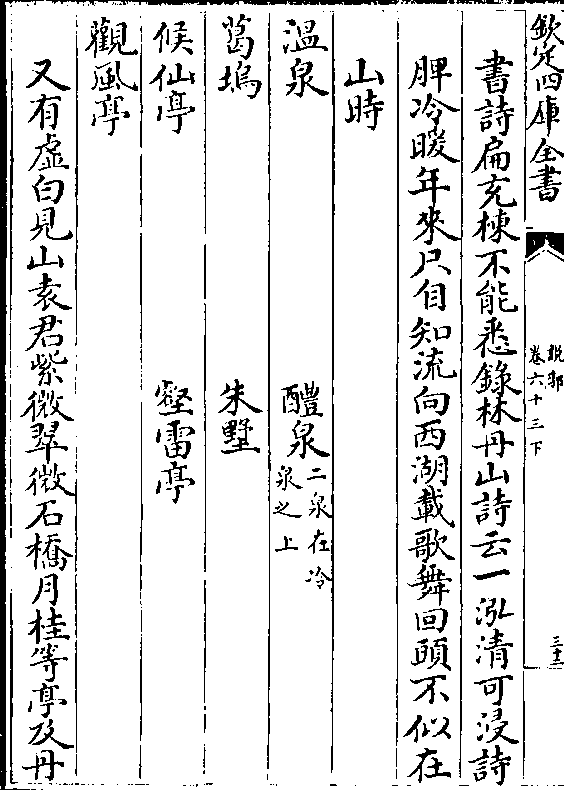 欽定四庫全書
說郛
卷六十三下
三十二
書詩扁充棟不能悉錄林丹山詩云一泓清可浸詩
脾冷暖年來尺自知流向西湖載歌舞回頭不似在
山時
溫泉 醴泉二泉在冷泉之上
葛塢 朱墅
候仙亭 壑雷亭
觀風亭
又有虛白見山袁君紫微翠微石橋月桂等亭及丹